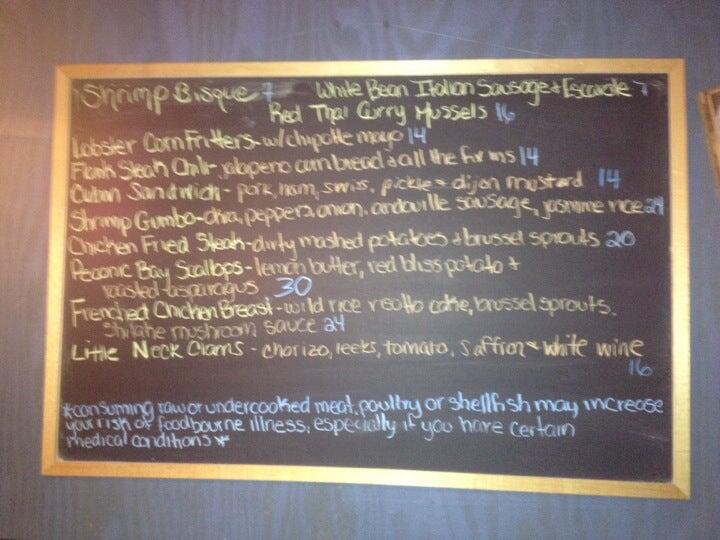 Shrimp Bisque 7 White Bean Italian Sausage + Escarole 7
Red Thai Curry Mussels 16
Lobster Corn Fritters - w/ chipotle mayo 14
Flank Steak Chili - jalapeno cornbread + all the fixins 14
Cuban Sandwich - pork, ham, swiss, pickle + dijon mustard 14
Shrimp Gumbo - okra, peppers, onion, andouille sausage, jasmine rice 24
Chicken Fried Steak - dirty mashed potatoes + brussel sprouts 20
Peconic Bay Scallops - lemon butter, red bliss potato +
roasted asparagus 30
Frenched Chicken Breast - wild rice risotto cake, brussel sprouts,
shitake mushroom sauce 24
Little Neck Clams - chorizo, leeks, tomato, saffron + white wine
16
*consuming raw or undercooked meat, poultry or shellfish may increase
your risk of foodbourne illness, especially if you have certain
medical conditions*